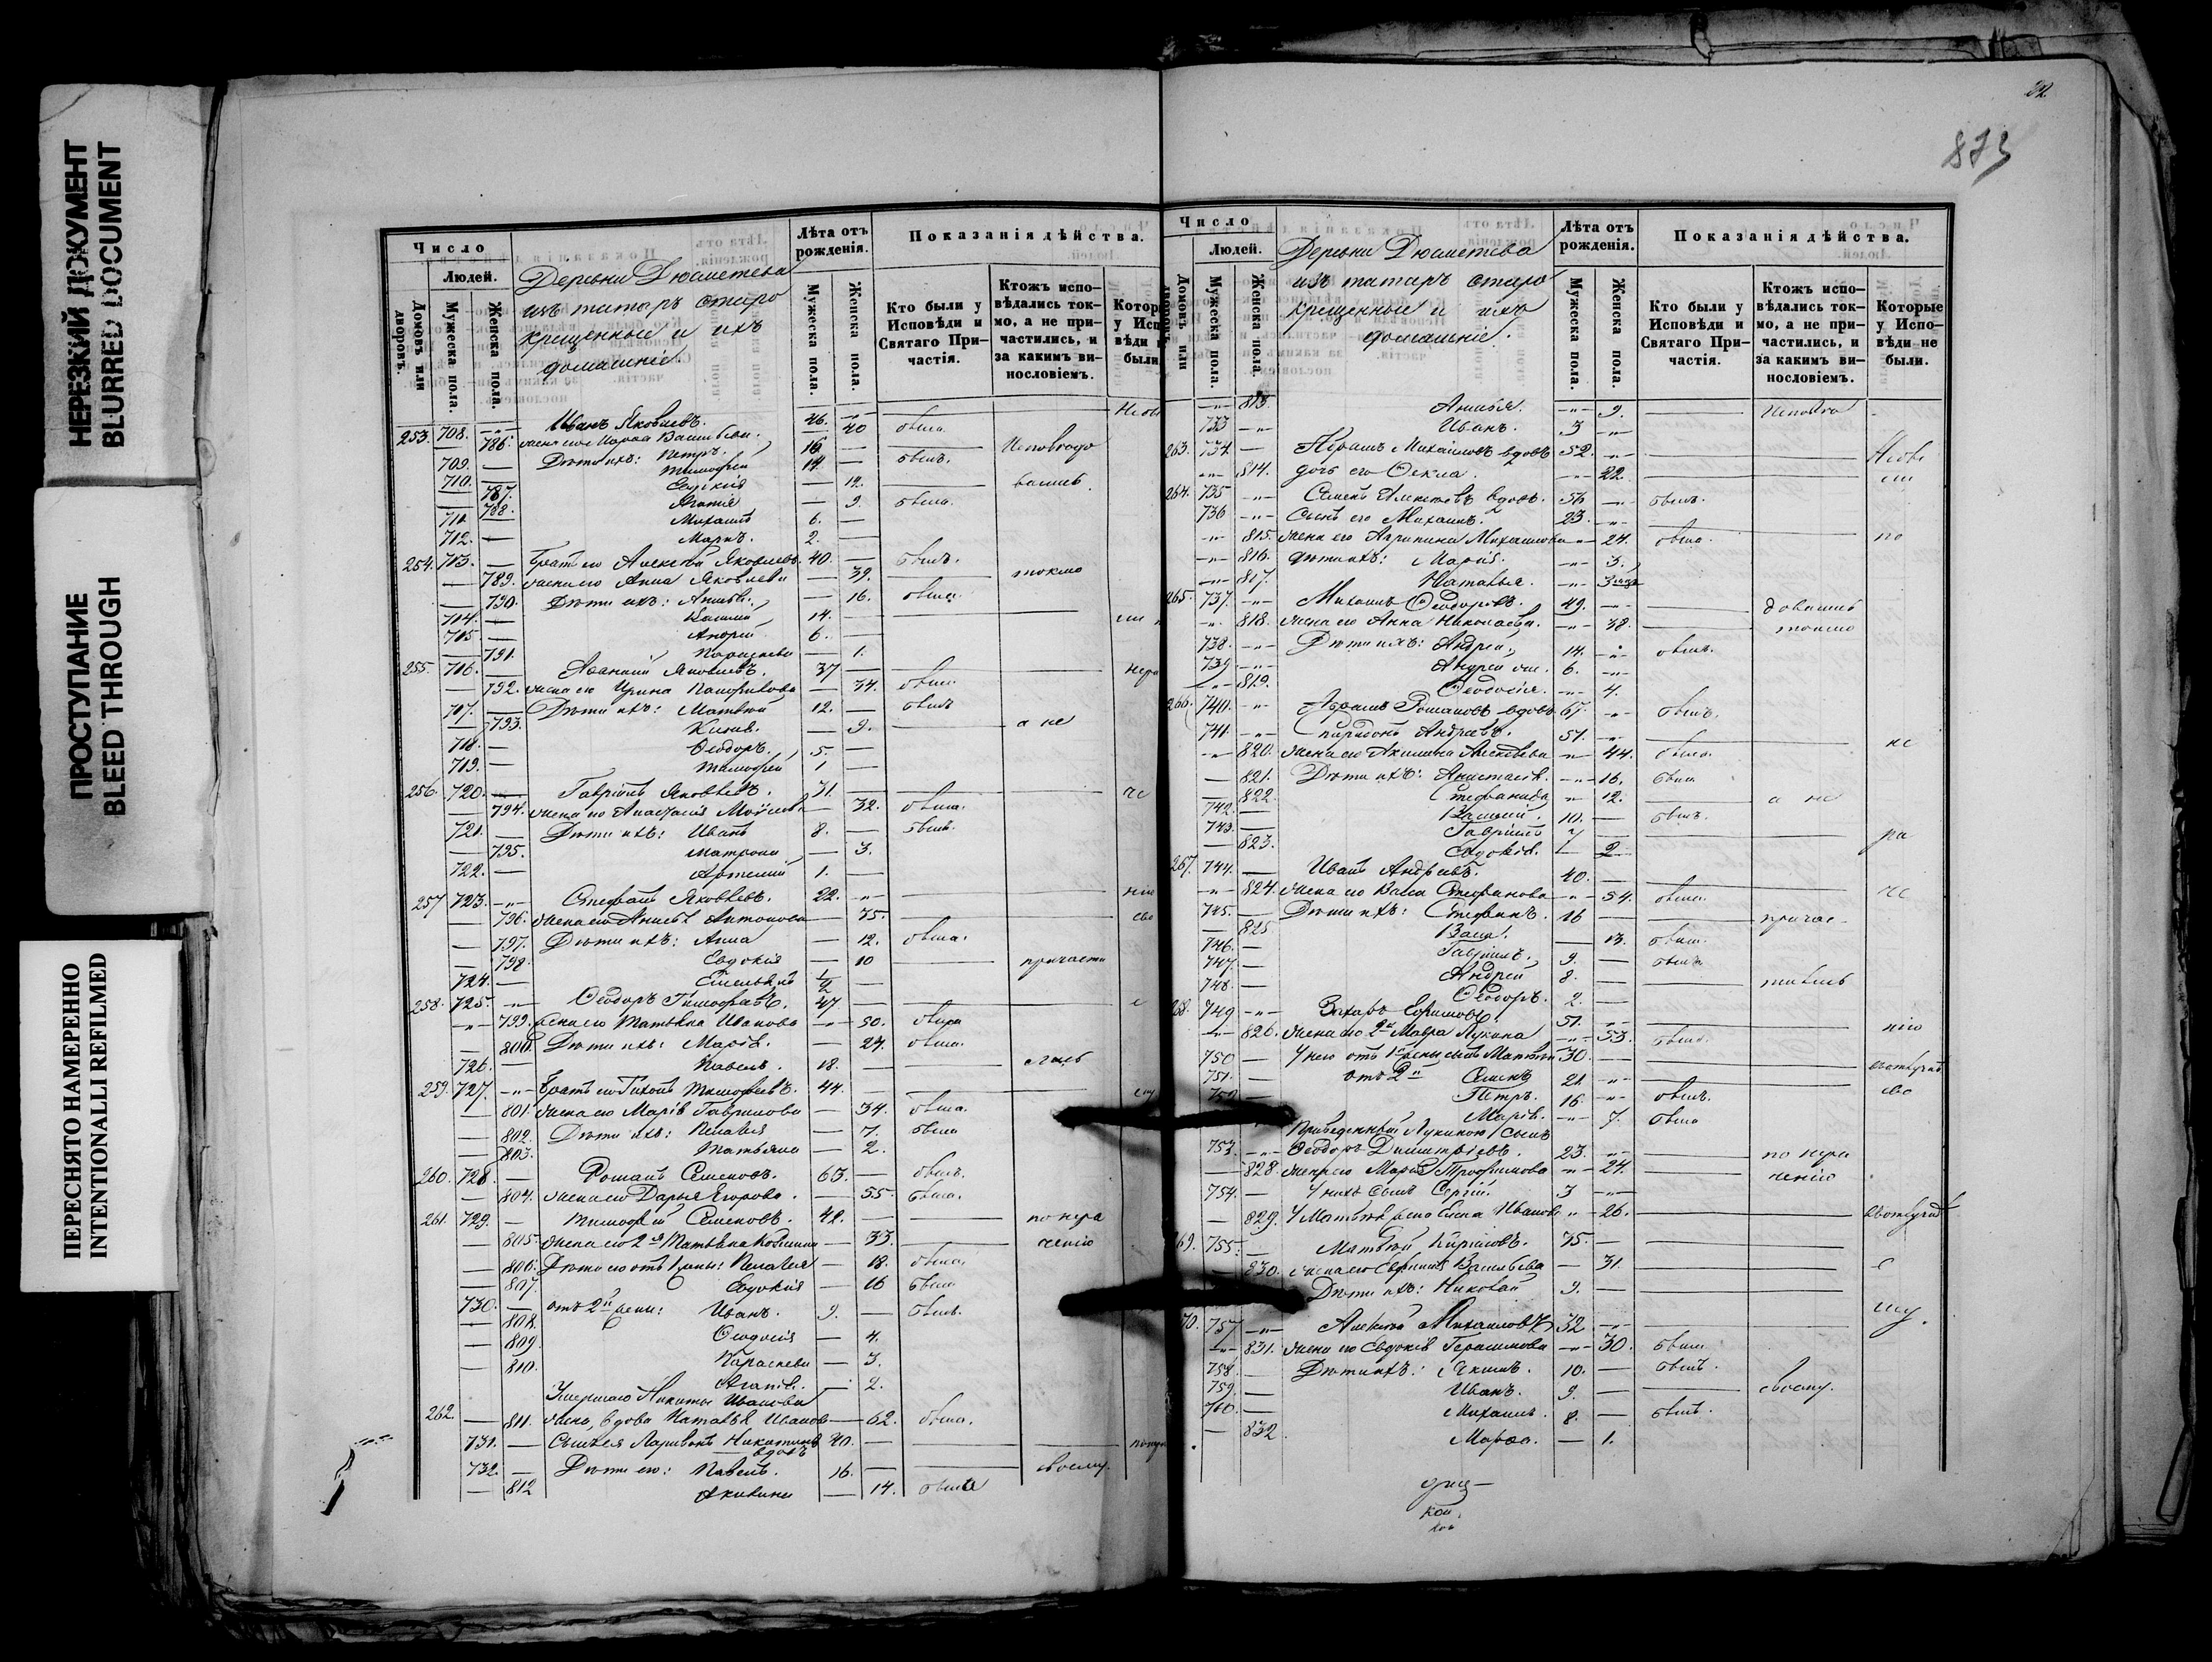 НЕРЕЗКИЙ ДОКУМЕНТ
BLURRED DOCUMENT
ПРОСТУПАНИЕ
BLEED THROUGH
ПЕРЕСНЯТО НАМЕРЕННО
INTENTIONALLI REFILMED
Число
Людей.
Домовъ или дворовъ.
Мужеска пола.
Женска пола.
Деревни Дюсметева
изъ татаръ старо
крещенные и ихъ
домашніе.
Лѣта отъ рожденія.
Мужеска пола
Женска пола.
Показанія дѣйства.
Кто были у Исповѣди и Святаго Причастія.
Ктожъ исповѣдались токмо, а не причастились, и за какимъ винословіемъ.
253. 708. Иванъ Яковлевъ. 46.
786. жена его Марѳа Васильева. 40 была
709. Дѣти ихъ: Петръ. 16
710. Тимоѳей 14 былъ.
787. Евдокія 12.
788. Агапія 9. была.
711. Михаилъ 6.
712. Маркъ. 2.
254. 713. Братъ его Алексѣй Яковлевъ. 40. былъ.
789. жена его Анна Яковлева 39. токмо
790. Дѣти ихъ: 16. была.
714. Василій 14.
715 Андрей 6.
791. Параскева 1.
255. 716. Яковлевъ. 37
792. жена его Ирина 34. была
717. Дѣти ихъ: Матвѣй 12. былъ
793. 9. а не
718. Ѳеодоръ. 5.
719. Тимоѳей 1
256. 720. Гавріилъ Яковлевъ. 31
794. жена его Анастасія 32. была.
721. Дѣти ихъ: Иванъ 8. былъ.
795. Матрона 3.
722. Артемій 1.
257 723. Стефанъ Яковлевъ. 22.
796. жена его Антонова 35.
797. Дѣти ихъ: Анна 12. была.
798. Евдокія 10
724. ½
258. 725. Ѳеодоръ Тимоѳеевъ. 47.
799. жена его Татьяна Иванова 50. была
800. Дѣти ихъ: Марія. 24. была.
726. Павелъ. 18.
259. 727. Братъ его Тихонъ Тимоѳеевъ. 44.
801. жена его Марія Гаврилова 34. была.
802. Дѣти ихъ: Пелагея 7. была
803. Татьяна 2.
260. 728. Романъ Семеновъ. 63. былъ.
804. жена его Дарья Егорова. 55. была.
261. 729. Тимоѳей Семеновъ. 42. по нера
805. жена его 2я Татьяна 33. ченію
806. Дѣти его отъ 1 жены: Пелагея 18. была
807. Евдокія 16 была
730. отъ 2й жены: Иванъ. 9. былъ.
808. Ѳеодосія 4.
809. Параскева 3.
810. Агапія. 2.
Умершаго Никиты Иванова
262. 811. жена, вдова Наталья Иванов 62. была.
731. Сынъ ея Ларивонъ Никитинъ 40.
вдовъ
732. Дѣти его: Павелъ. 16. своему.
812 Акилина 14. была
22.
873
Число
Людей.
Домовъ или
Мужеска пола.
Женска пола.
Деревни Дюсметева
изъ татаръ старо
крещенные и ихъ
домашніе.
Лѣта отъ рожденія.
Мужеска пола.
Женска пола.
Показанія дѣйства.
Кто были у Исповѣди и Святаго Причастія.
Ктожъ исповѣдались токмо, а не причастились, и за какимъ винословіемъ.
Которые у Исповѣди не были.
813. 9.
733 Иванъ. 3
263. 734. Абрамъ Михайловъ вдовъ 52.
814. дочь его Ѳекла. 22.
264. 735 Семенъ вдовъ. 56 былъ.
736 Сынъ его Михаилъ. 23.
815. жена его Агрипина Михайлова 24. была. по
816. дѣти ихъ: Марія. 3.
817. Наталья.
265. 737. Михаилъ Ѳеодоровъ. 49.
818. жена его Анна Николаева. 38. токмо
738. Дѣти ихъ: Андрей, 14. былъ.
739 Андрей 6.
819. Ѳеодосія. 4.
266. 740. Абрамъ Романовъ вдовъ 67. былъ.
741. Спиридонъ Андреевъ. 51. не
820. жена его Акилина 44. была.
821. Дѣти ихъ: Анастасія. 16. была
822. Стефанида 12. а не
742. Василій. 10. былъ.
743. Гавріилъ 7 ра
823. Евдокія. 2
267. 744. Иванъ Андреевъ. 40.
824. жена его Васса Стефанова 34. была. че
745. Дѣти ихъ: Стефанъ. 16 причас
825. Васса. 13. была.
746. Гавріилъ. 9. былъ
747. Андрей 8.
748. Ѳеодоръ. 2.
268. 749 Захаръ Ефимовъ 51. нію
826. жена его 2я Мавра Лукина 53. была.
750 У него отъ 1й жены сынъ Матвѣй 30.
751. отъ 2й Семенъ 21.
Петръ 16. былъ.
Марія. 7. была
Приведенный Лукиною сынъ
753. Ѳеодоръ Димитріевъ. 23. по нера
828. жена его Марія Трофимова 24. ченію
754. У нихъ сынъ Сергій. 3
829. У Матвѣя жена Елена Иванова 26.
69. 755. Матвѣй 35.
830. жена его Васильева 31.
Дѣти ихъ: Николай 9.
70. 757 Алексѣй Михайловъ 32
831. жена его Евдокія Герасимова 30. была
758. Дѣти ихъ: Якимъ. 10. былъ.
759. Иванъ. 9. своему.
760. Михаилъ. 8. былъ.
832 Марѳа. 1.